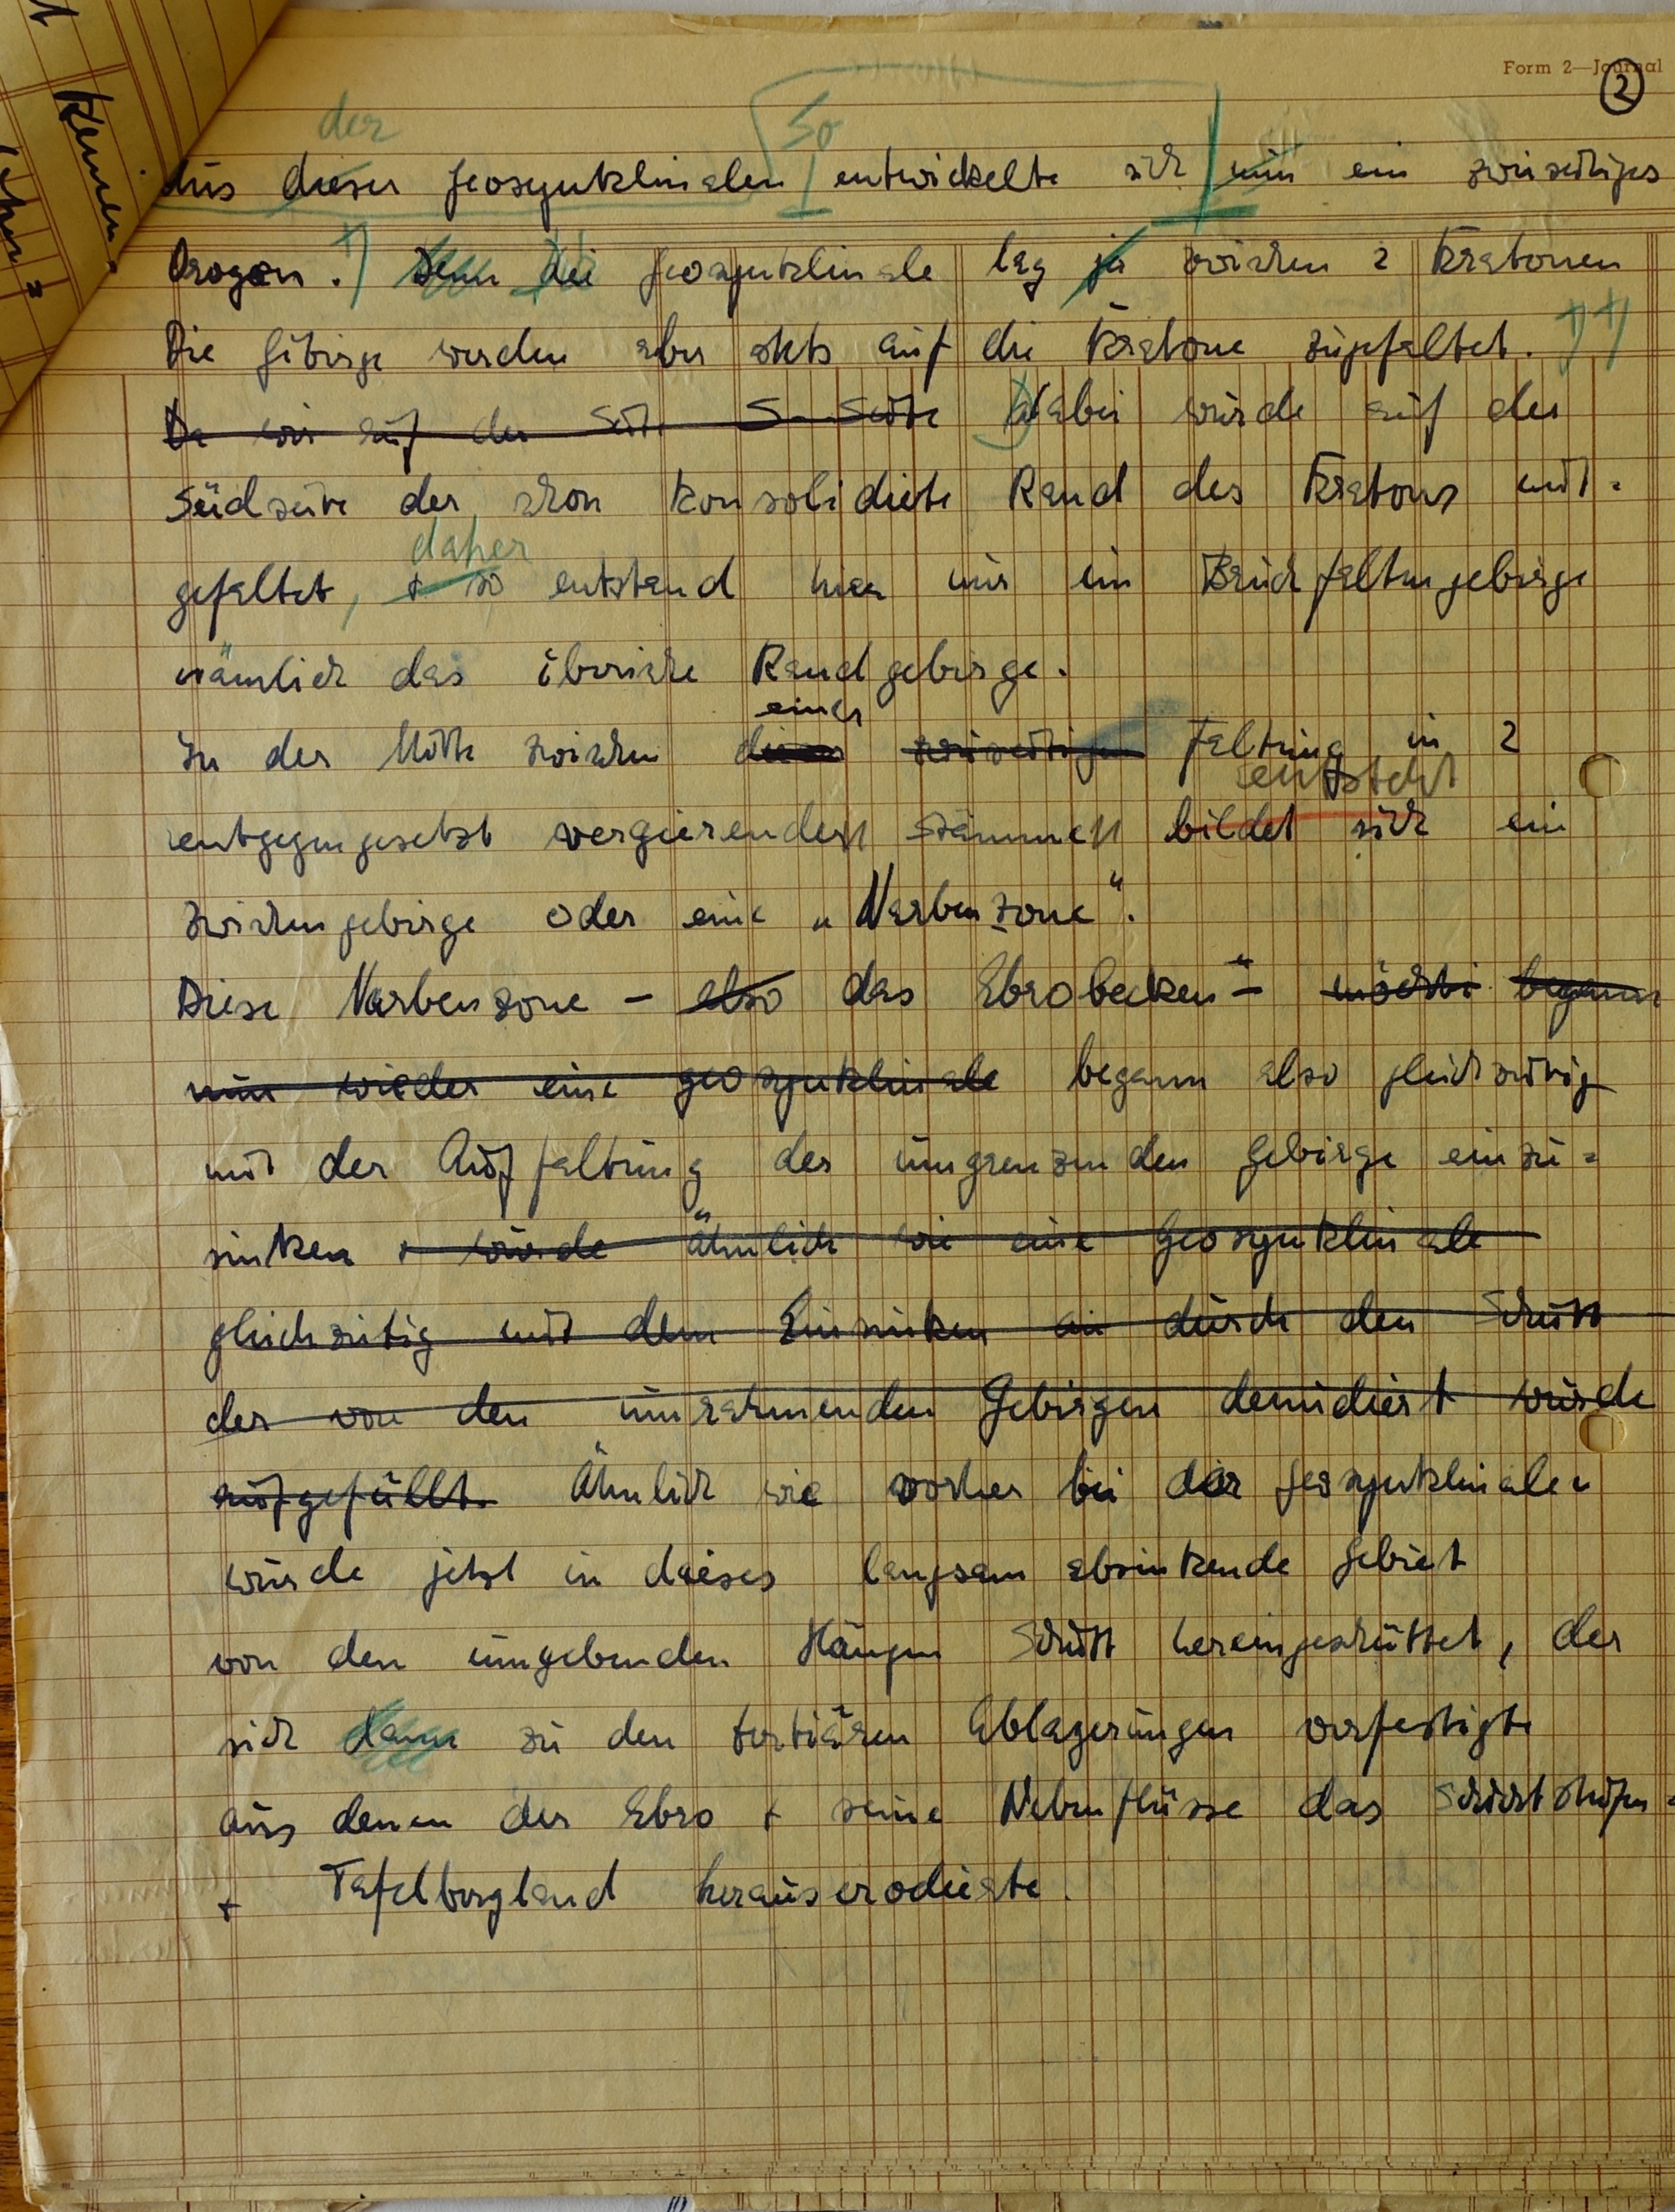 Form 2—Journal
2
der
So
Aus dieser Geosynklinalen entwickelte sich nun ein zweiseitiges
Orogen. +) Denn die Geosynklinale lag ja zwischen 2 Kratonen
Die Gebirge werden aber stets auf die Kratone zugefaltet. ++)
Da wir auf der Süd S-Seite Dabei wurde auf der
Südseite der schon konsolidierte Rand des Kratons mit=
daher
gefaltet, + so entstand hier nur ein Bruchfaltengebirge
nämlich das iberische Randgebirge.
einer
In der Mitte zwischen dieser zweiseitigen Faltung in 2
entsteht
entgegengesetzt vergierenden Stämmen bildet sich ein
Zwischengebirge oder eine „Narbenzone".
Diese Narbenzone – also das Ebrobecken – möchte begann
nun wieder eine Geosynklinale begann also gleichzeitig
mit der Auffaltung der umgrenzenden Gebirge einzu=
sinken + wurde ähnlich wie eine Geosynklinale
gleichzeitig mit dem Einsinken durch den Schutt
der von den umrahmenden Gebirgen denudiert wurde
aufgefüllt. Ähnlich wie vorher bei der Geosynklinalen
wurde jetzt in dieses langsam absinkende Gebiet
von den umgebenden Hängen Schutt hereingeschüttet, der
sich dann zu den tertiären Ablagerungen verfestigte
aus denen der Ebro + seine Nebenflüsse das Schichtstufen=
+ Tafelbergland herauserodierte.